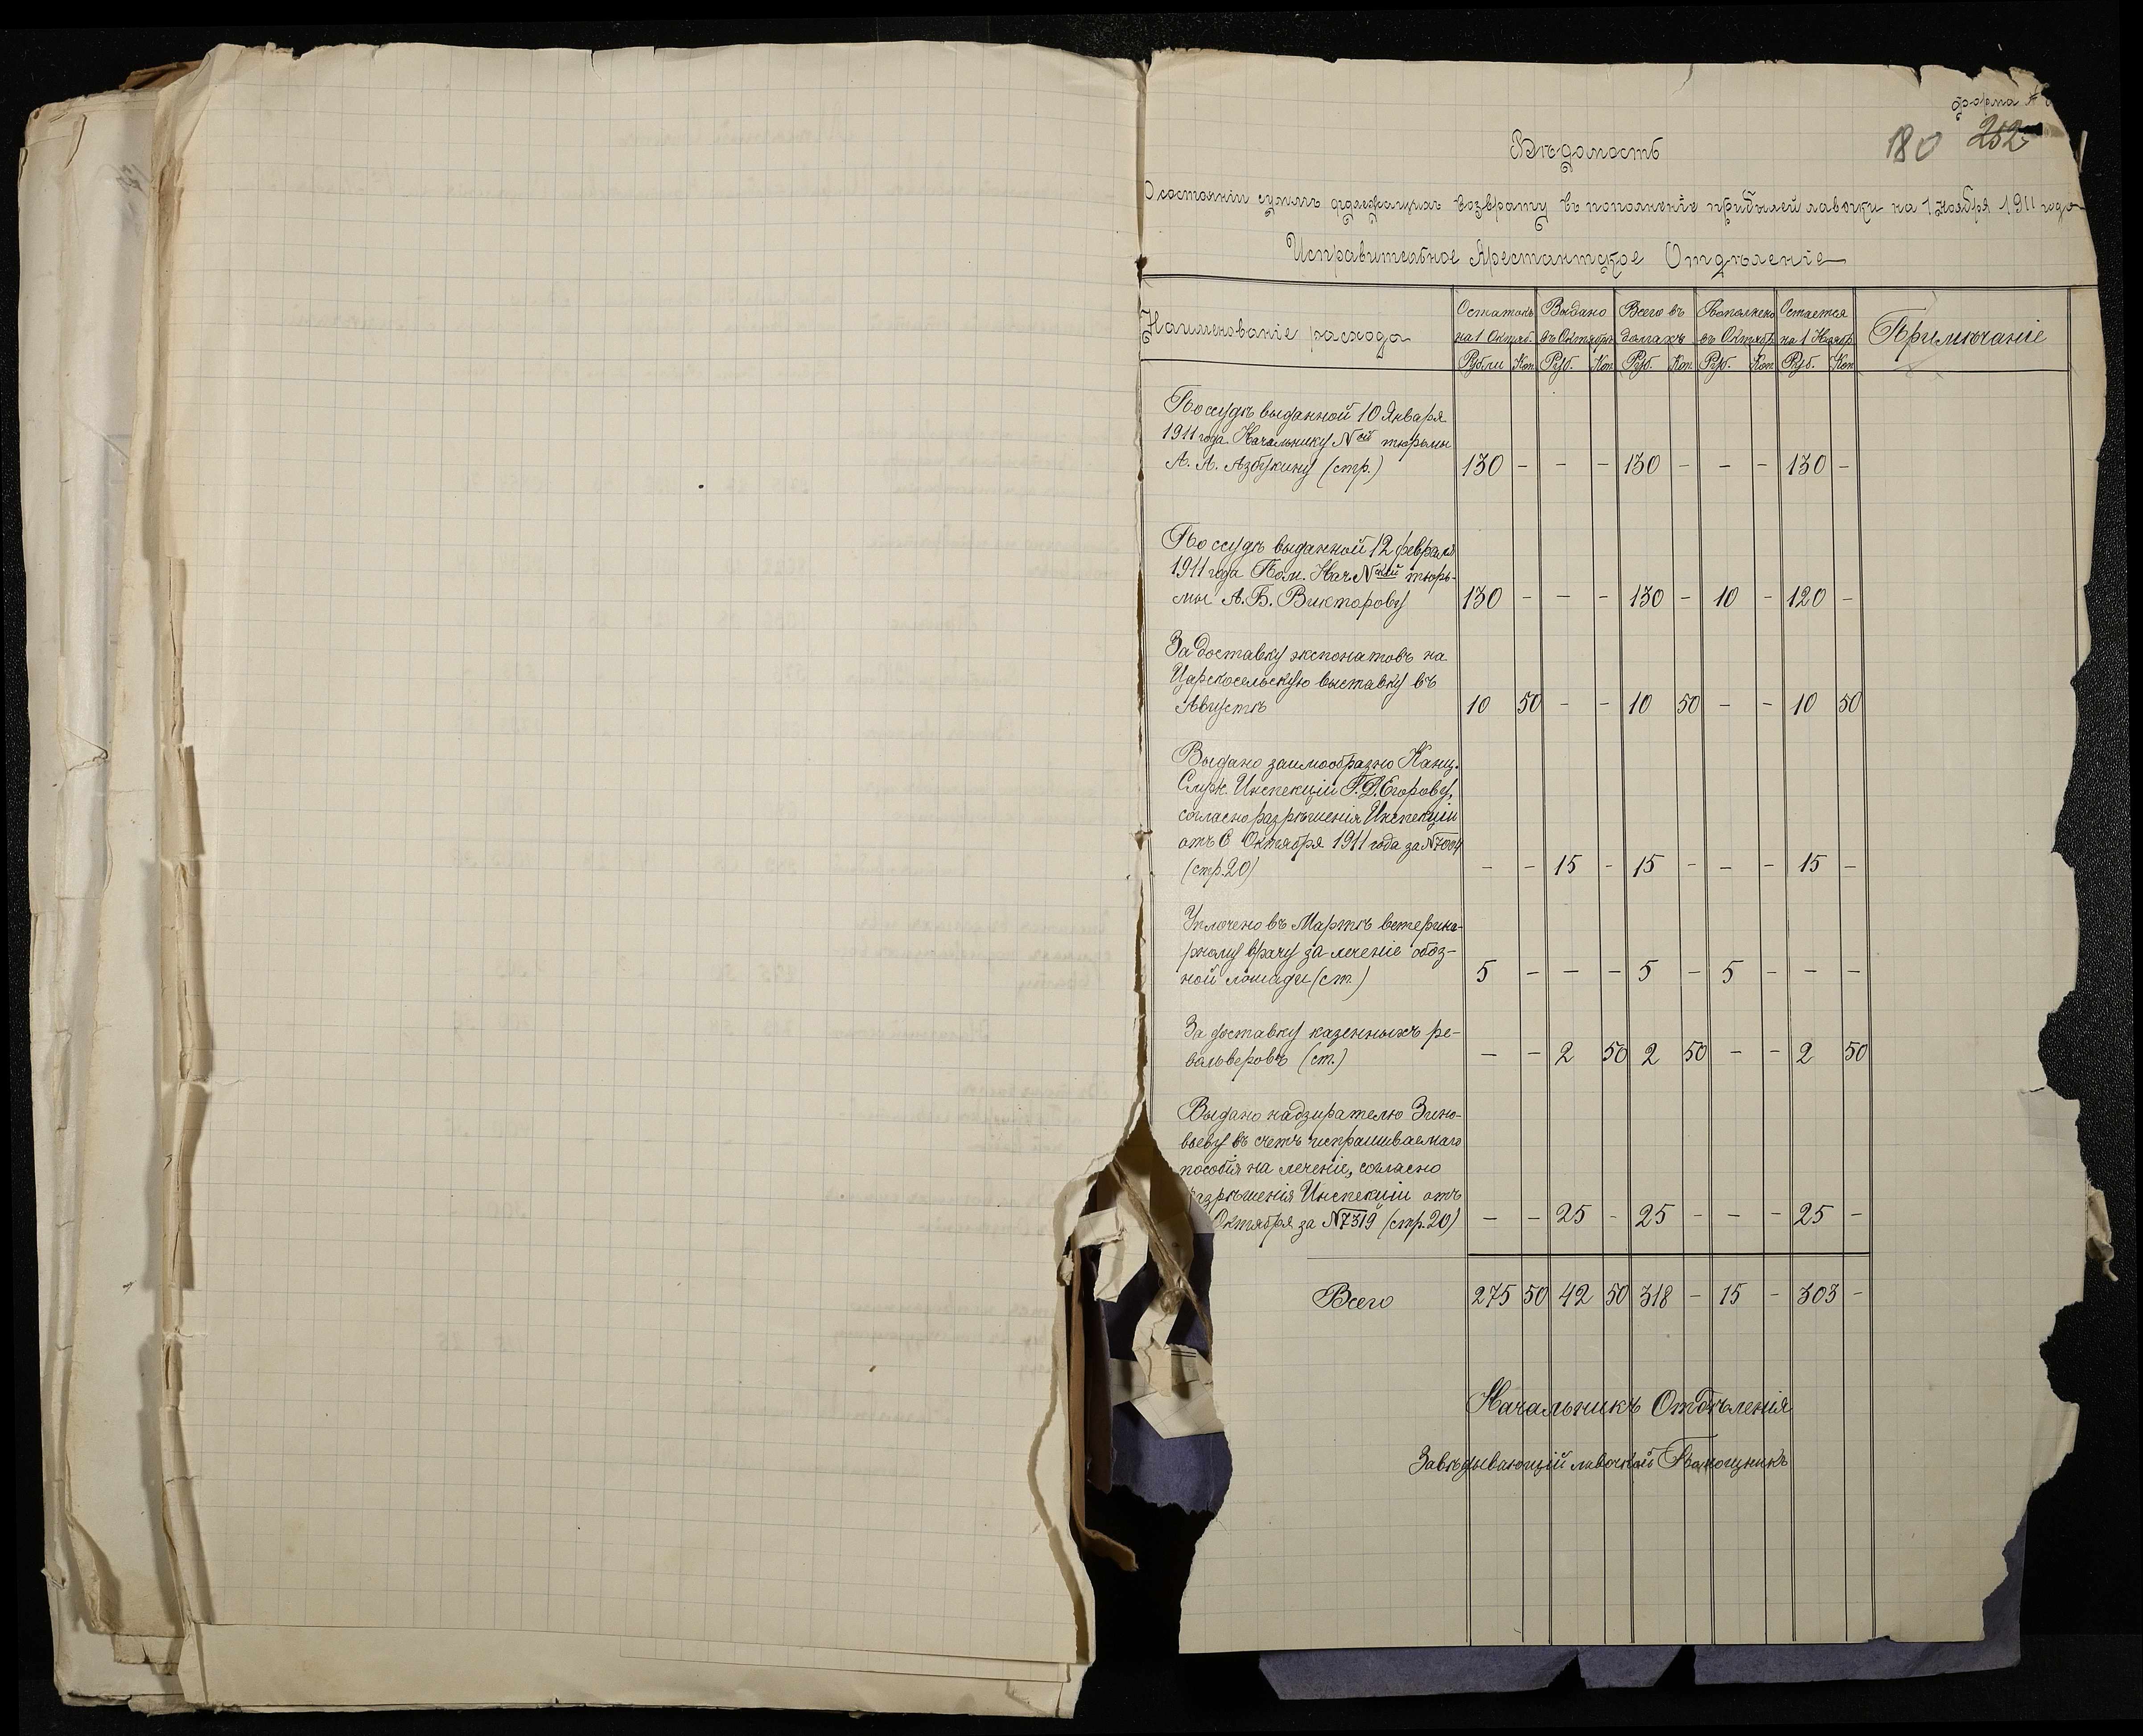 форма №
180 252
Вѣдомость
О состояніи суммъ подлежащихъ возврату въ пополненіе прибылей лавочки на 1 ноября 1911 года
Исправительное Арестантское Отдѣленіе
Наименованіе расхода
Остатокъ на 1 Октяб. Рубли Коп
Выдано въ Октябрѣ Руб. Коп
Всего въ долгахъ Руб. Коп
Пополнено въ Октябр Руб. Коп
Остается на 1 Ноябр Руб. Коп
Примѣчаніе
По ссудѣ выданной 10 Января
1911 года Начальнику Nой тюрьмы
А. А. Азбукину (стр.) 130 - - - 130 - - - 130 -
По ссудѣ выданной 12 февраля
1911 года Пом. Нач Nской тюрь-
мы А. В. Викторову 130 - - - 130 - 10 - 120 -
За доставку экспонатовъ на
Царскосельскую выставку въ
Августѣ 10 50 - - 10 50 - - 10 50
Выдано заимообразно Канц.
Служ. Инспекціи Г. Д. Егорову,
согласно разрѣшенія Инспекціи
отъ 6 Октября 1911 года за N7004
(стр. 20) - - 15 - 15 - - - 15 -
Уплочено въ Мартѣ ветерина-
рному врачу за леченіе обоз-
ной лошади (ст.) 5 - - - 5 - 5 - - -
За доставку казенныхъ ре-
вальверовъ (ст.) - - 2 50 2 50 - - 2 50
Выдано надзирателю Зино-
вьеву въ счетъ испрашиваемаго
пособія на леченіе, согласно
разрѣшенія Инспекціи отъ
Октября за N7319 (стр. 20) - - 25 - 25 - - - 25 -
Всего 275 50 42 50 318 - 15 - 303 -
Начальникъ Отдѣленія
Завѣдывающій лавочкой Помощникъ